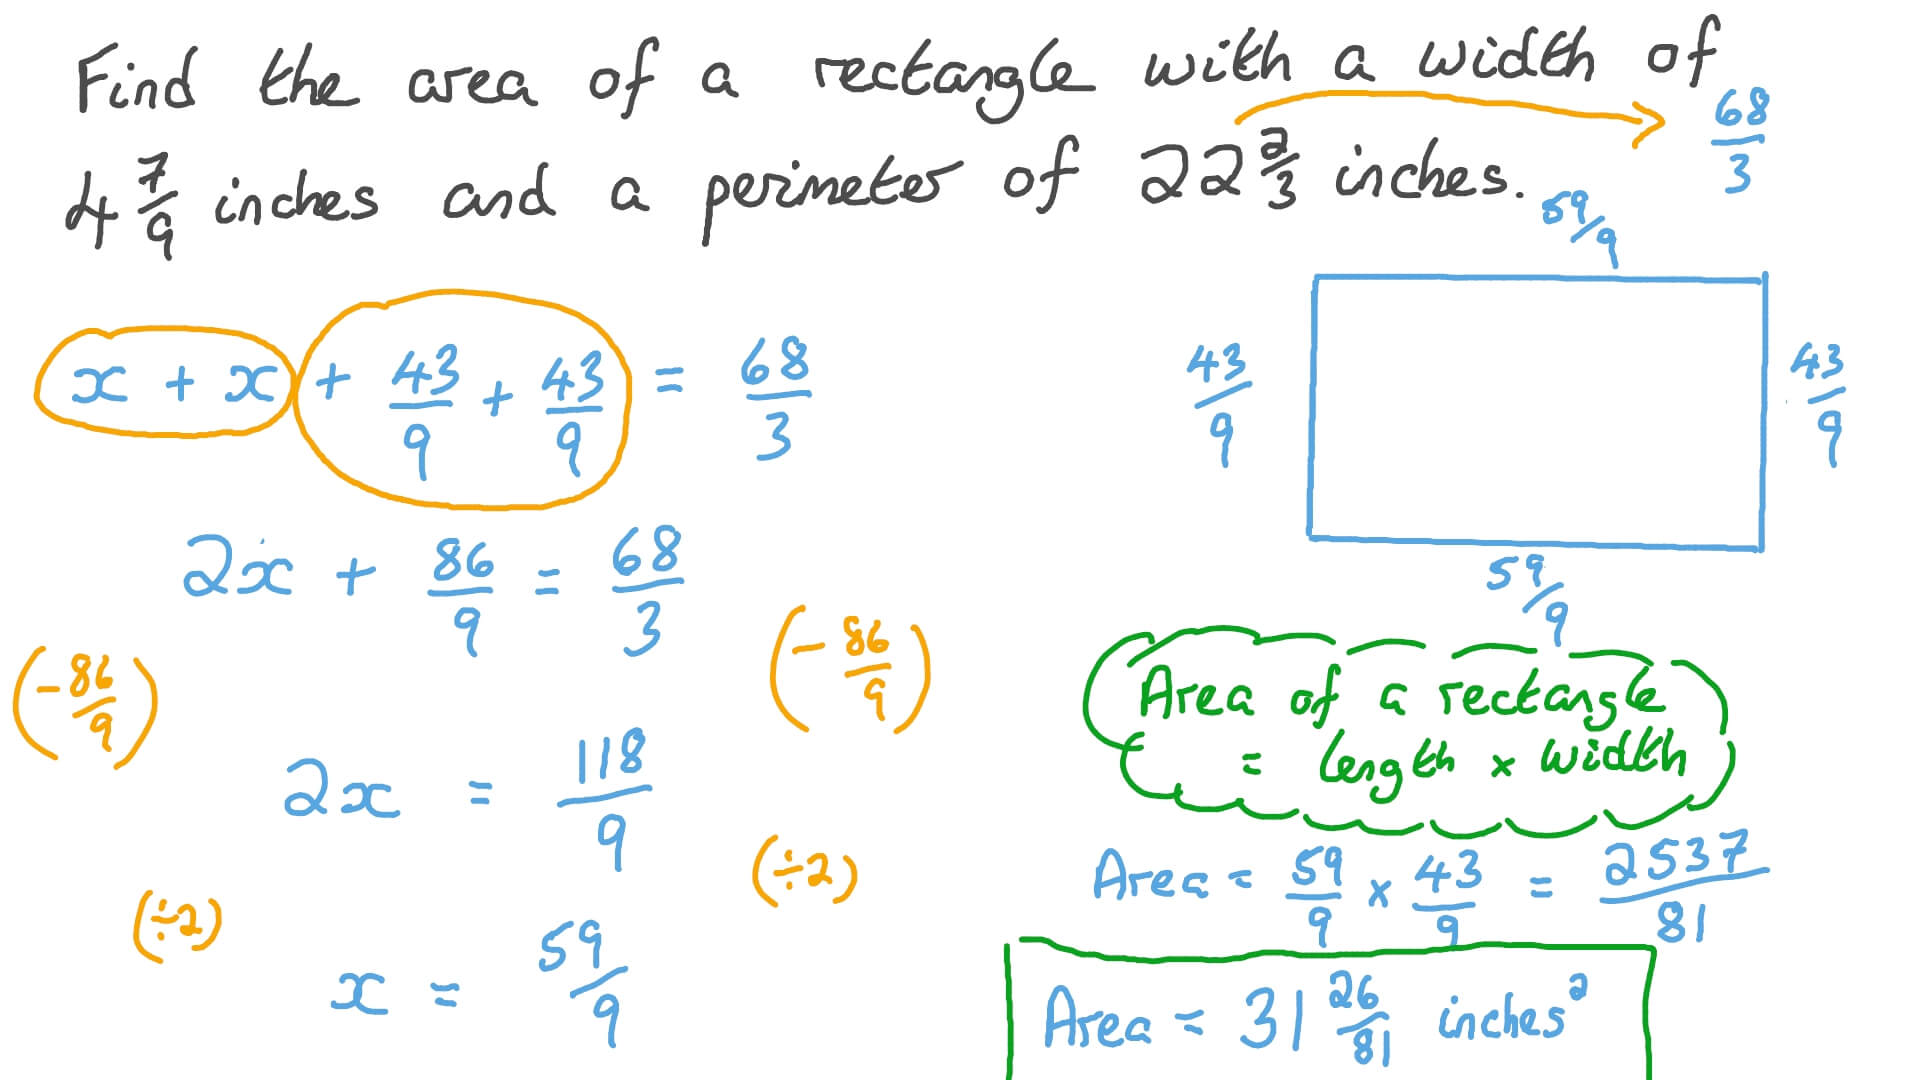 Find the area of a rectangle with a width of
4 7/9 inches and a perimeter of 22 2/3 inches.
68/3
59/9
x + x + 43/9 + 43/9 = 68/3
43/9
43/9
2x + 86/9 = 68/3
59/9
(-86/9)
(-86/9)
2x = 118/9
(÷2)
(÷2)
x = 59/9
Area of a rectangle
= length × width
Area = 59/9 × 43/9 = 2537/81
Area = 31 26/81 inches²